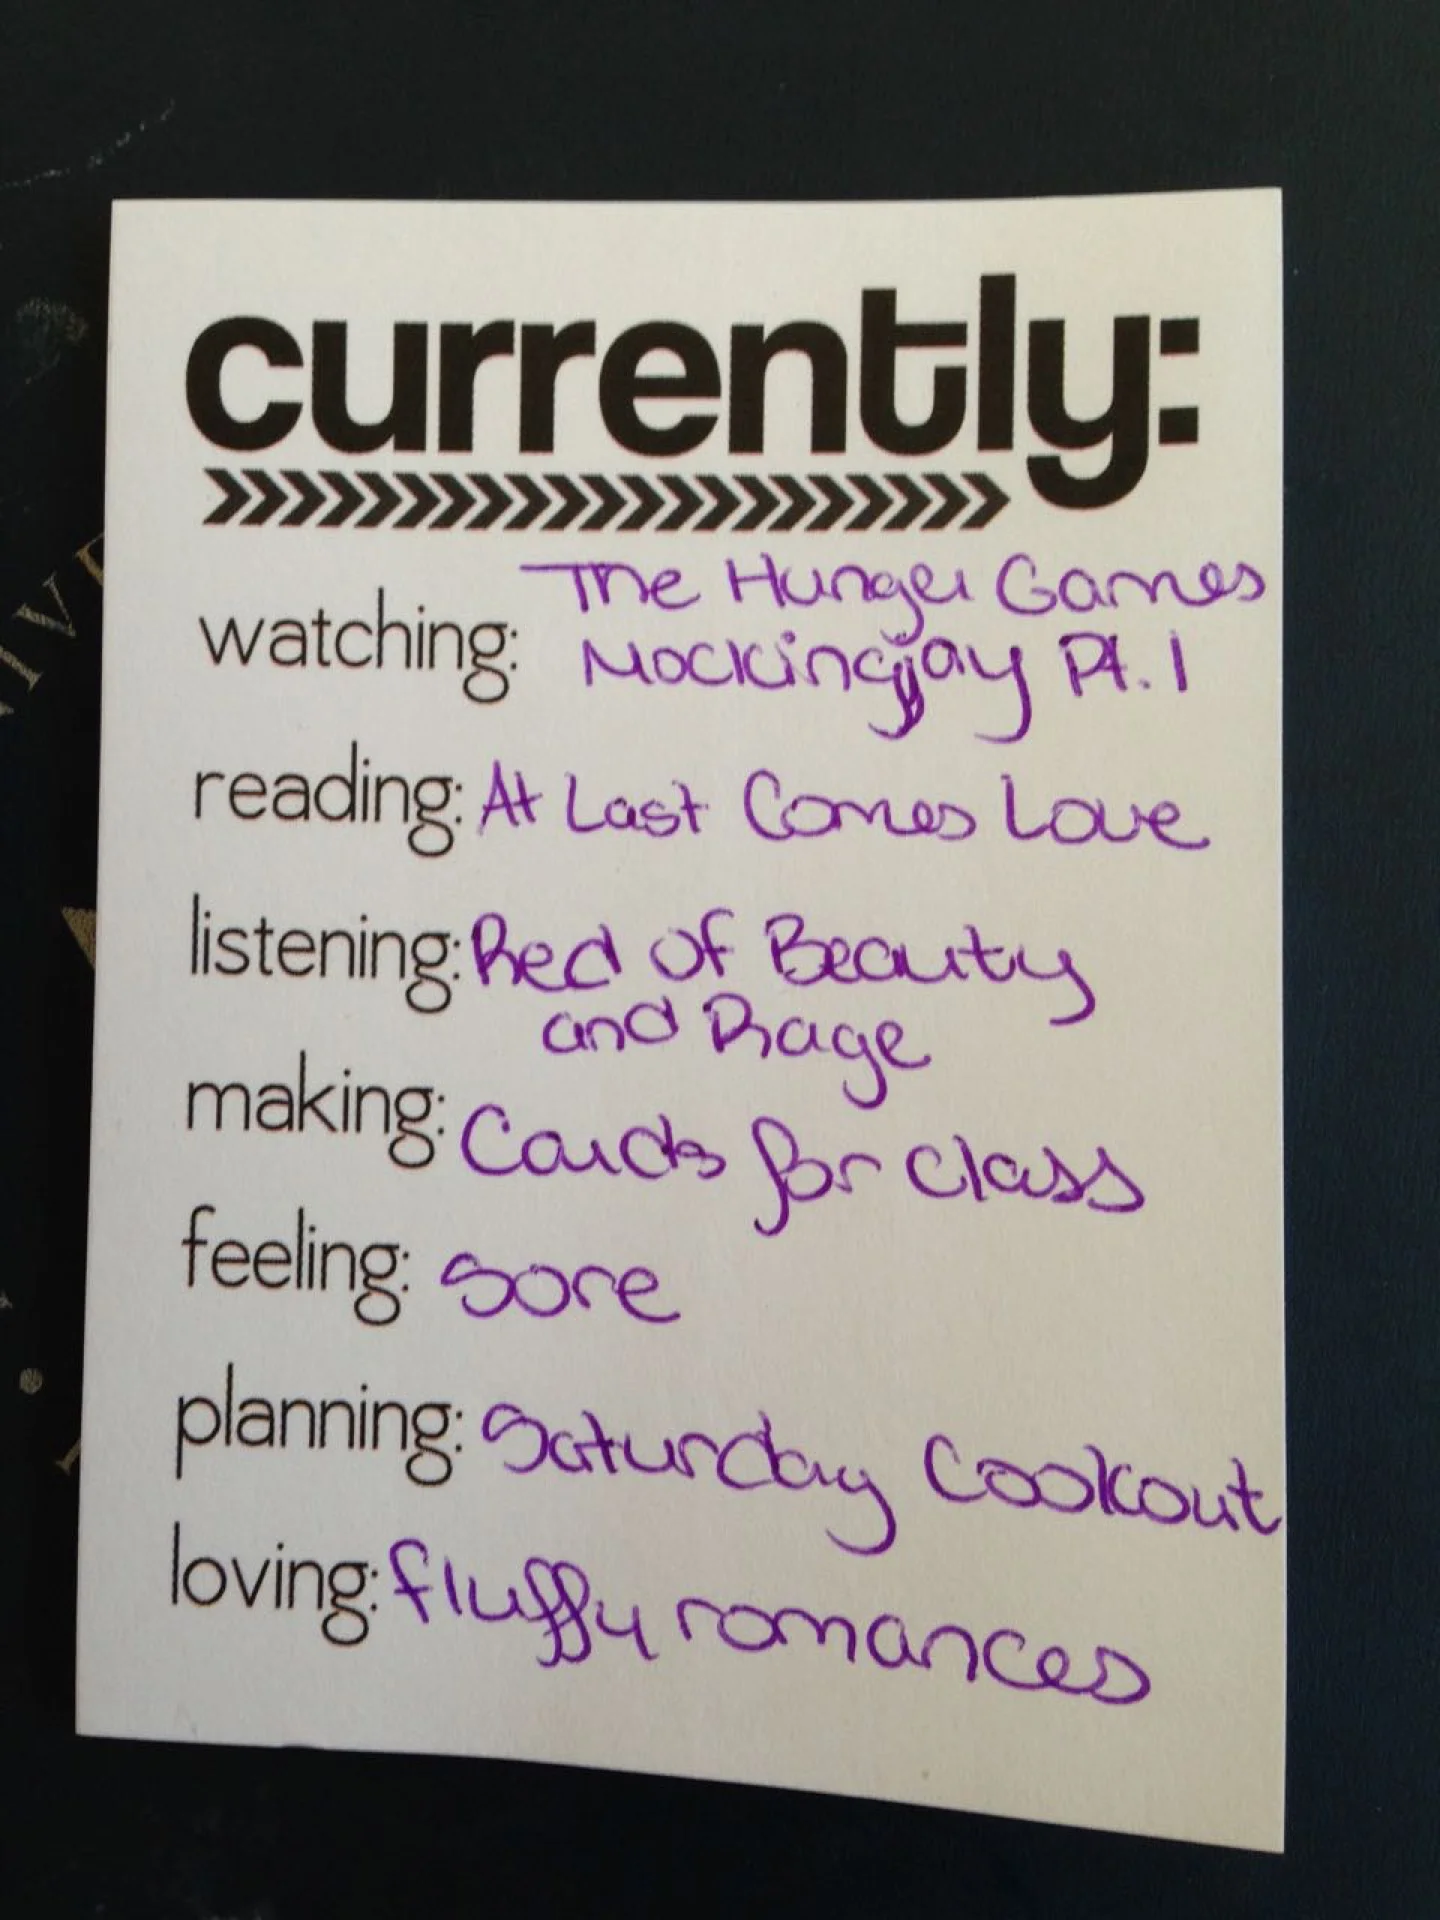 currently:
The Hunger Games
watching: Mockingjay Pt. 1
reading: At Last Comes Love
listening: Red of Beauty
and Rage
making: Cards for class
feeling: Sore
planning: Saturday Cookout
loving: fluffy romances